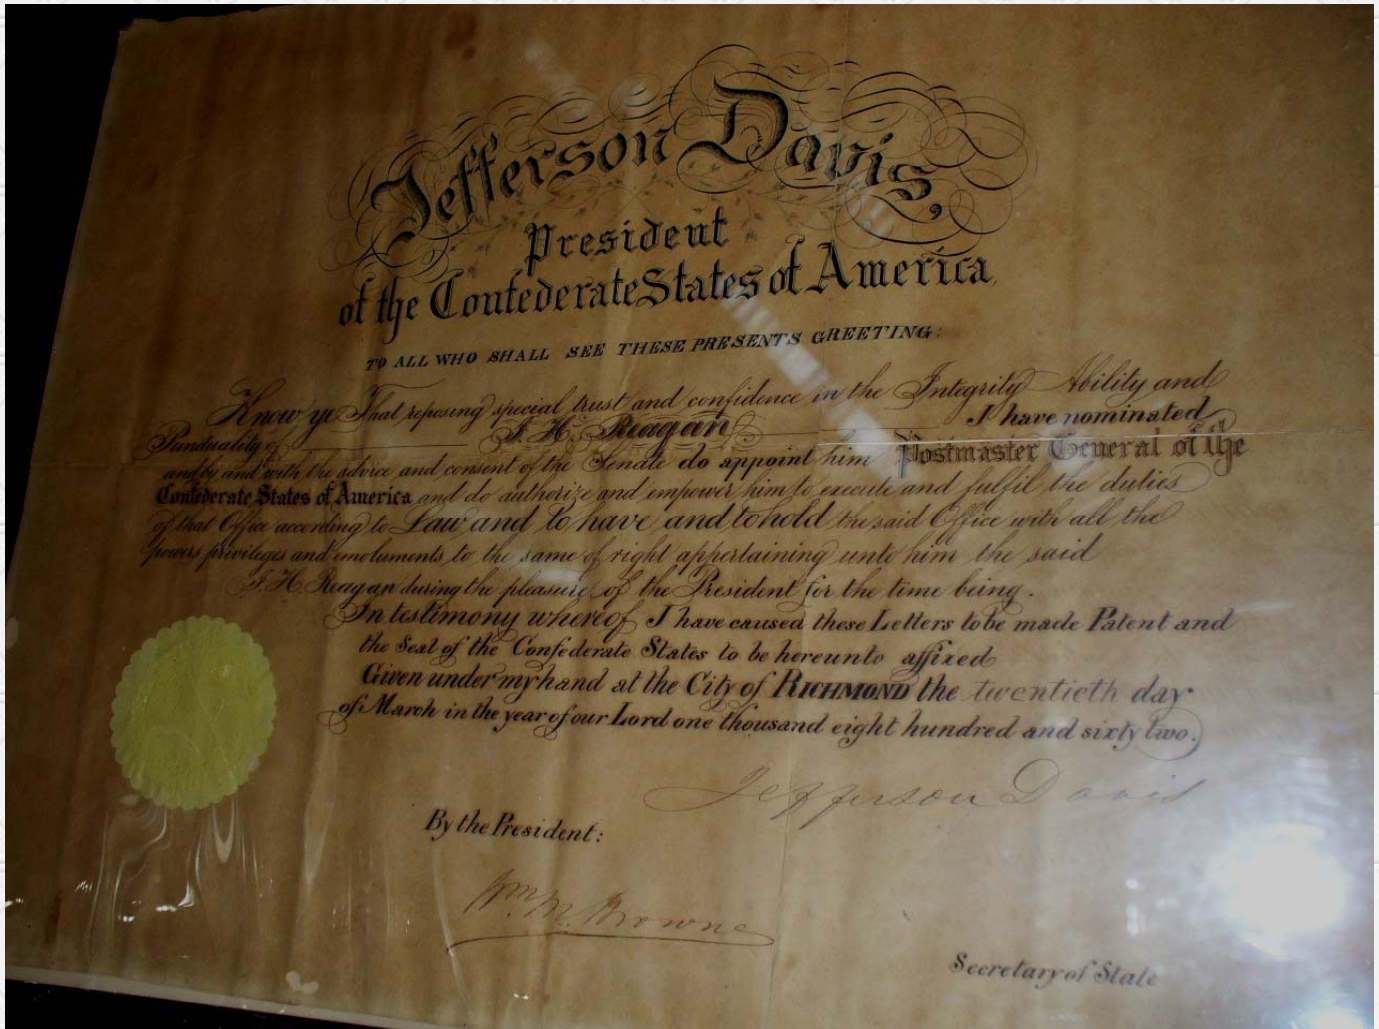 Jefferson Davis,
President
of the Confederate States of America.
TO ALL WHO SHALL SEE THESE PRESENTS GREETING:
Know ye That reposing special trust and confidence in the Integrity Ability and
Punctuality of J. H. Reagan I have nominated
and by and with the advice and consent of the Senate do appoint him Postmaster General of the
Confederate States of America and do authorize and empower him to execute and fulfil the duties
of that Office according to Law and to have and to hold the said Office with all the
powers privileges and emoluments to the same of right appertaining unto him the said
J. H. Reagan during the pleasure of the President for the time being.
In testimony whereof I have caused these Letters to be made Patent and
the Seal of the Confederate States to be hereunto affixed
Given under my hand at the City of RICHMOND the twentieth day
of March in the year of our Lord one thousand eight hundred and sixty two.
Jefferson Davis
By the President:
Wm. M. Browne
Secretary of State